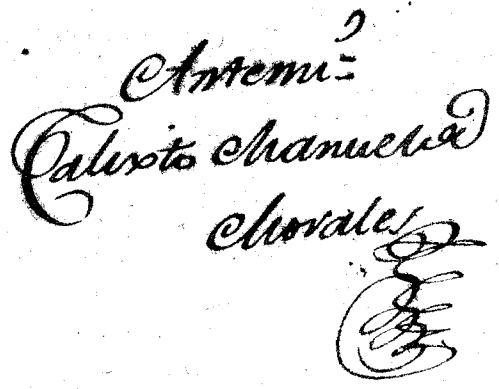 Ante mi
Calixto Manuel de
Morales